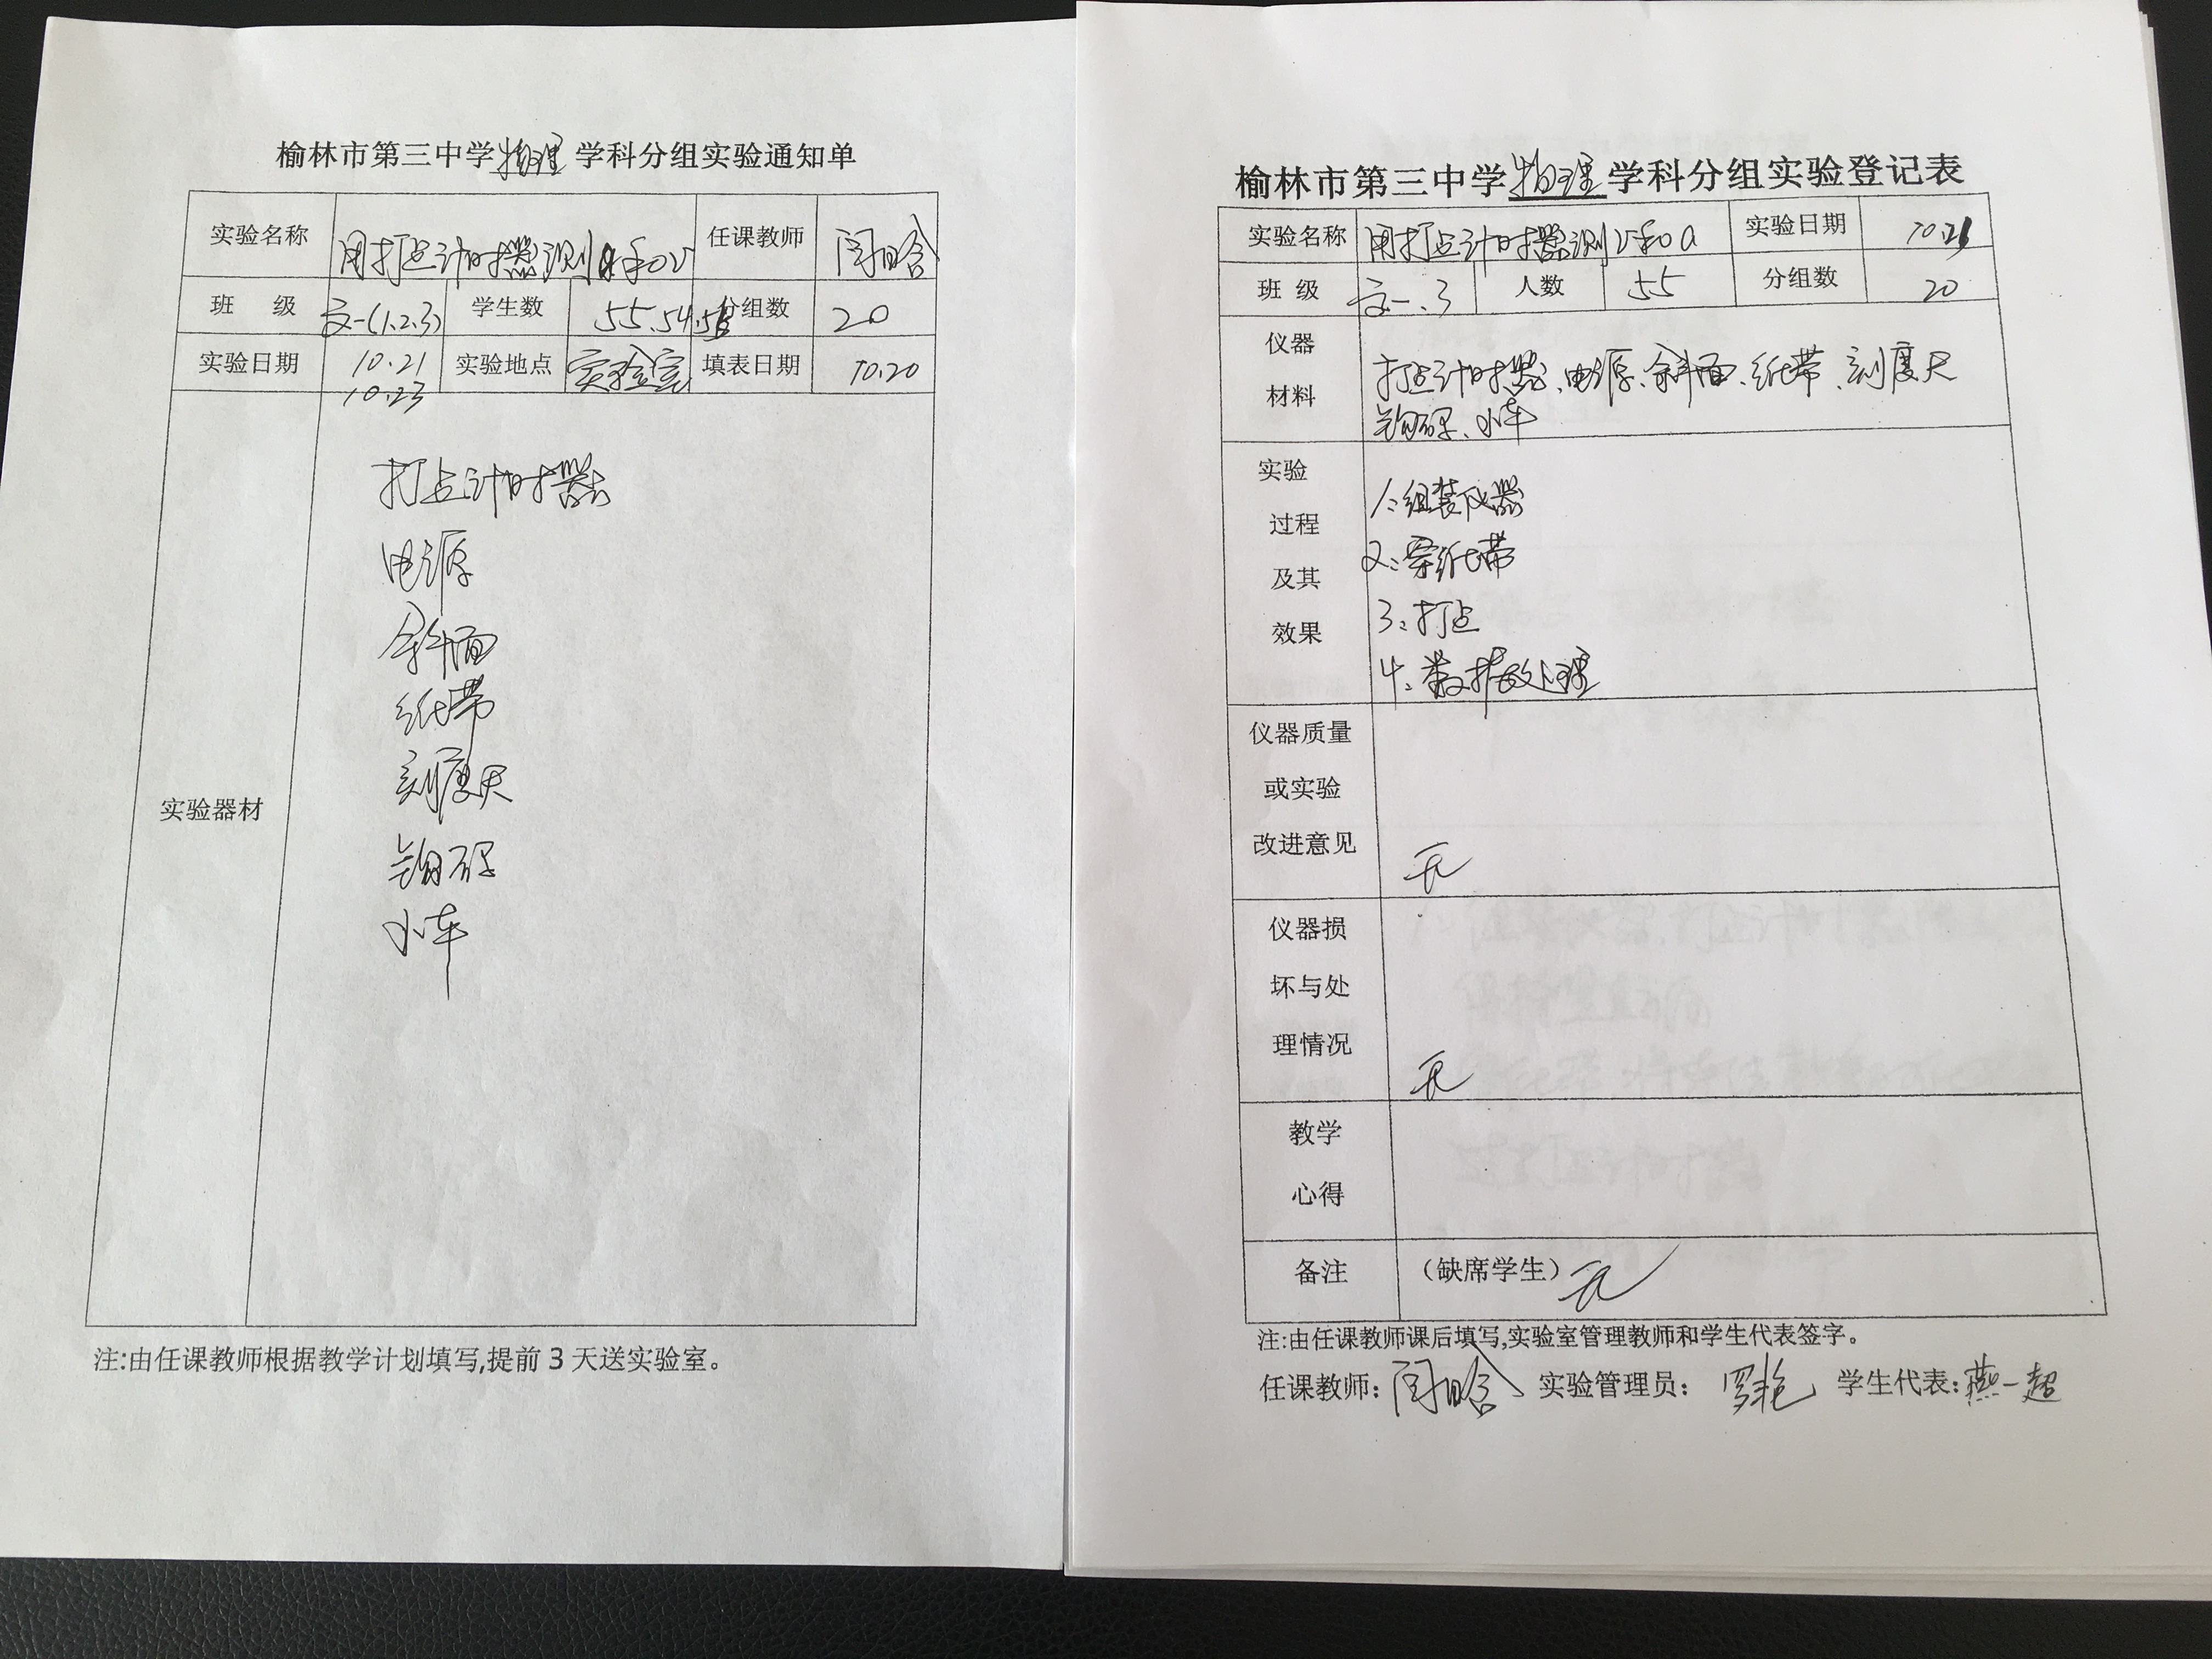 榆林市第三中学物理学科分组实验通知单
实验名称 用打点计时器测a和v 任课教师 闫晗
班 级 高一(1.2.3) 学生数 55.54.55 分组数 20
实验日期 10.21 10.23 实验地点 实验室 填表日期 10.20
实验器材
打点计时器
电源
斜面
纸带
刻度尺
钩码
小车
注:由任课教师根据教学计划填写,提前 3 天送实验室。
榆林市第三中学物理学科分组实验登记表
实验名称 用打点计时器测v和a 实验日期 10.21
班 级 高一.3 人数 55 分组数 20
仪器材料 打点计时器、电源、斜面、纸带、刻度尺
钩码、小车
实验过程及其效果
1:组装仪器
2:穿纸带
3:打点
4:数据处理
仪器质量或实验改进意见 无
仪器损坏与处理情况 无
教学心得
备注 (缺席学生) 无
注:由任课教师课后填写,实验室管理教师和学生代表签字。
任课教师: 闫晗 实验管理员: 罗艳 学生代表: 燕一超